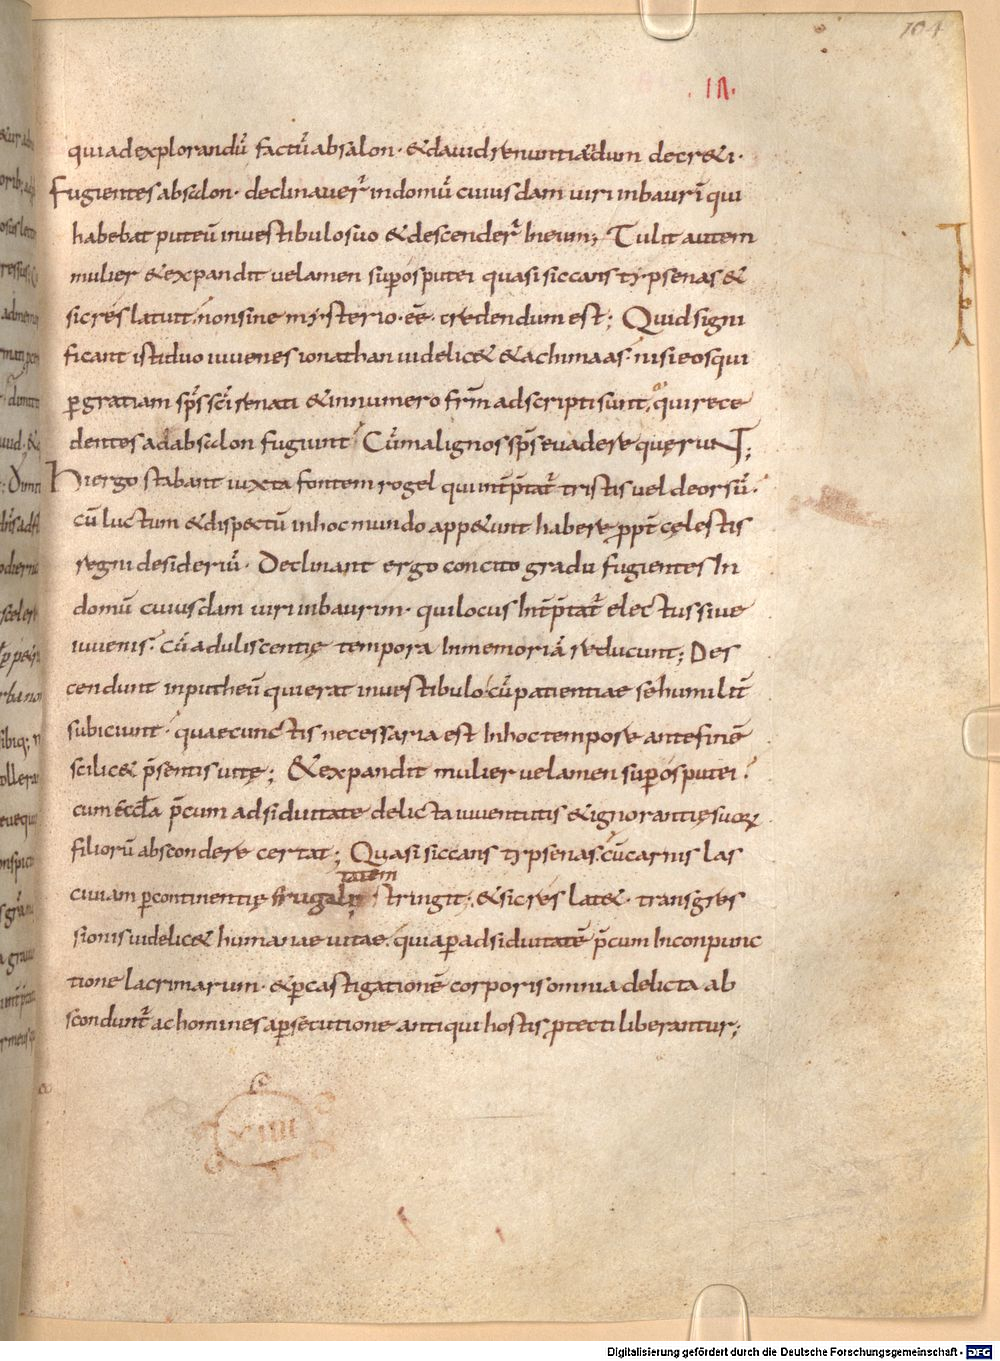 104
.III.
qui ad explorandū factū absalon · & dauid renuntiandum decreti ·
Fugientes absalon · declinauer̄ in domū cuiusdam uiri in baurī qui
habebat puteū in uestibulo suo & descender̄ In eum; Tulit autem
mulier & expandit uelamen sup os putei quasi siccans typsenas &
sic res latuit; non sine mysterio · ēē · credendum est; Quid signi
ficant isti duo iuuenes ionathan uidelic& & achimaas · nisi eos qui
ꝑ gratiam sp̄s sc̄i renati & in numero fr̄m adscripti sunt, qui rece
dentes ad absalon fugiunt · Cū malignos sp̄s euadere quęruNT;
Hi ergo stabant iuxta fontem rogel qui int̄p̄tat̄ tristis uel deorsū ·
cū luctum & dispectū in hoc mundo app&unt habere ꝓpt̄ cęlestis
regni desideriū · Declinant ergo concito gradu fugientes In
domū cuiusdam uiri in baurim · qui locus Int̄p̄tat̄ electus siue
iuuenis · cū aduliscentię tempora In memoriā reducunt; Des
cendunt in putheū qui erat in uestibulo · cū patientiae se humilit̄
subiciunt · quae cunctis necessaria est In hoc tempore ante finē
scilic& p̄sentis uitę; & expandit mulier uelamen sup os putei ·
cum ęccl̄a p̄cum adsiduitate delicta iuuentutis & ignorantię suoꝝ
filiorū abscondere certat; Quasi siccans typsenas · cū carnis las
tatem
ciuiam ꝑ continentię frugali stringit; & sic res lat& · transgres
sionis uidelic& humanae uitae · quia ꝑ adsiduitatē p̄cum In conpunc
tione lacrimarum · & ꝑ castigationē corporis omnia delicta ab
scondunt̄ ac homines a ꝑsecutione antiqui hostis ꝓtecti liberantur;
XIIII
Digitalisierung gefördert durch die Deutsche Forschungsgemeinschaft - DFG